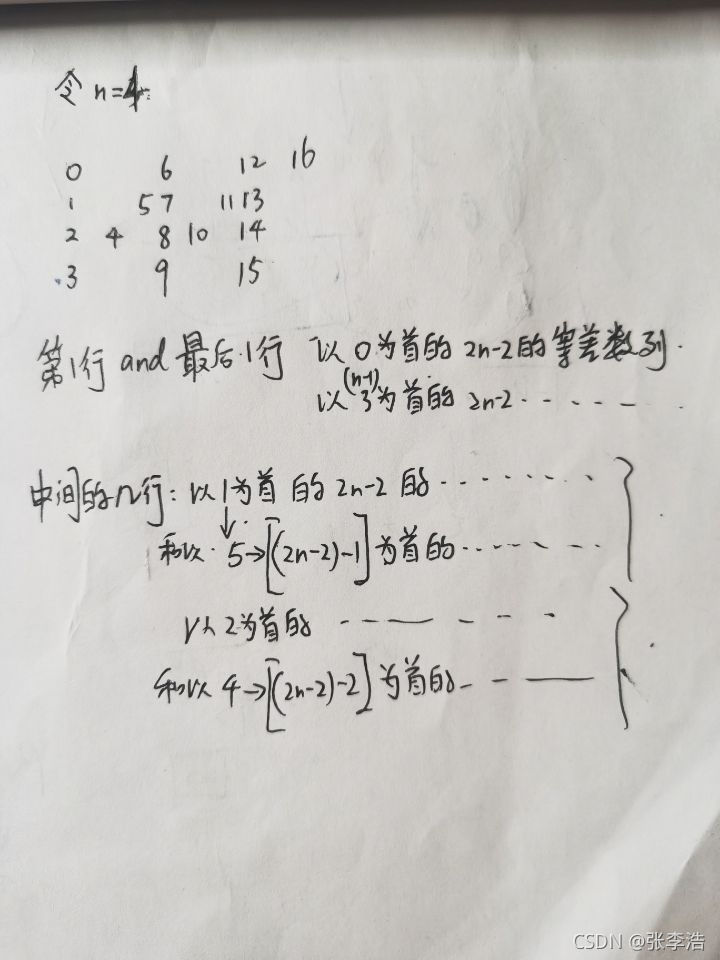 令 n=4.
0 6 12 16
1 5 7 11 13
2 4 8 10 14
3 9 15
第1行 and 最后1行 以 0 为首的 2n-2 的等差数列.
(n-1)
以 3 为首的 2n-2 ......
中间的几行: 以1为首 的 2n-2 的 ........
↓
和以 5→[(2n-2)-1]为首的......
以2为首的 ......
和以 4→[(2n-2)-2]为首的......
CSDN @张李浩